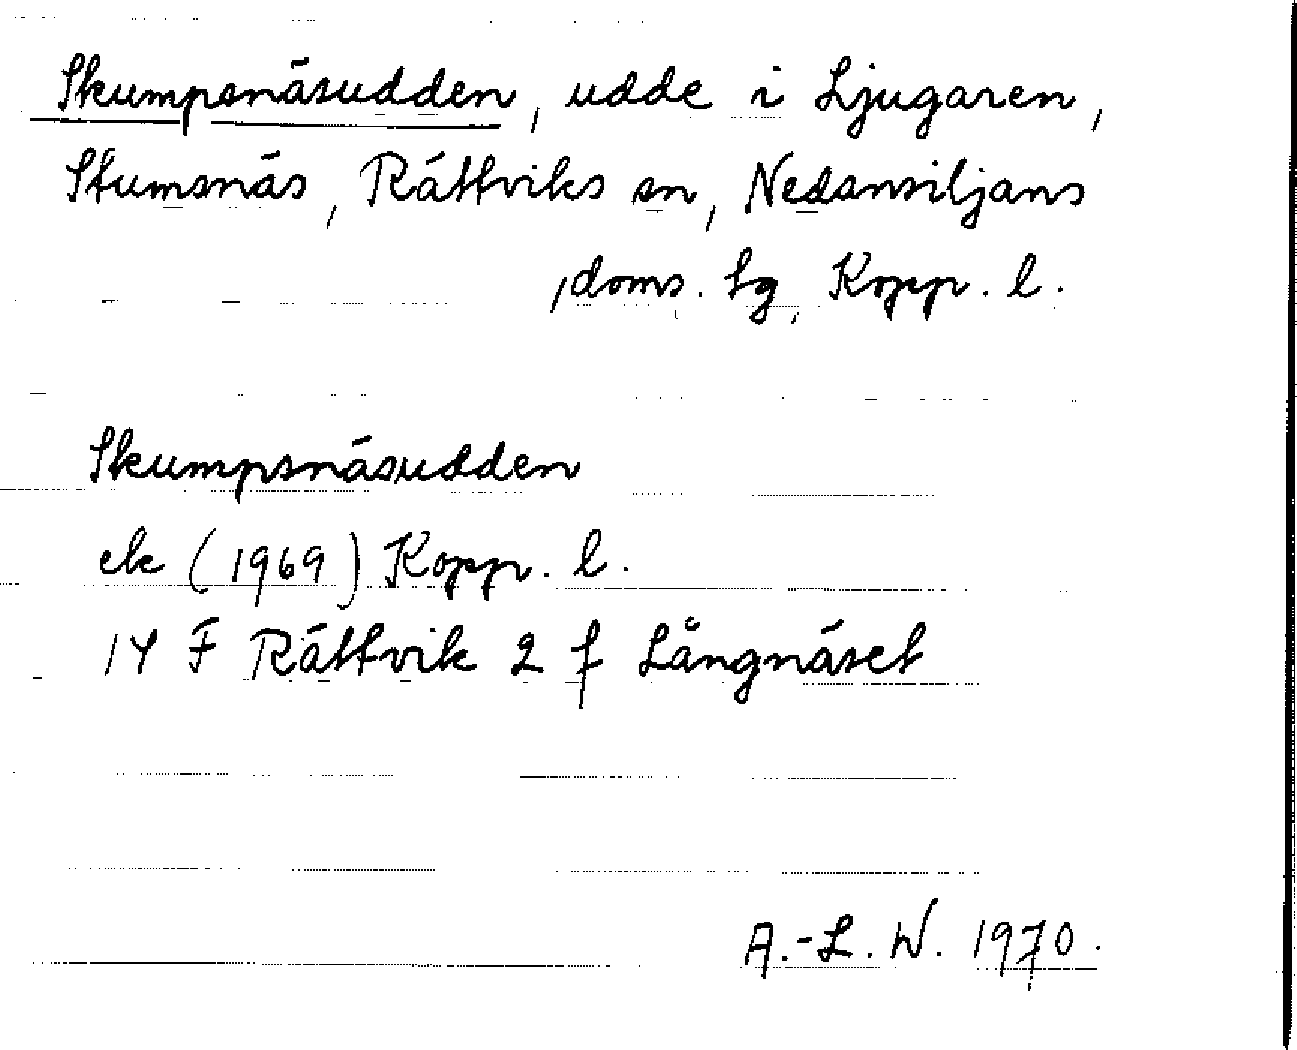 Skumpsnäsudden, udde i Ljugaren,
Stumsnäs, Rättviks sn, Nedansiljans
doms. tg, Kopp. l.
Skumpsnäsudden
ek (1969) Kopp. l.
14 F Rättvik 2 f Långnäset
A.-L. W. 1970.